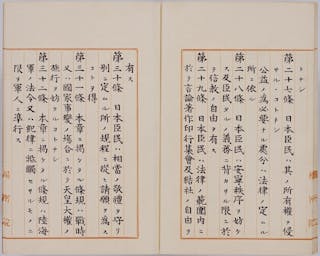 トナシ
第二十七條 日本臣民ハ其ノ所有權ヲ侵
サルヽコトナシ
公益ノ爲必要ナル處分ハ法律ノ定ムル
所ニ依ル
第二十八條 日本臣民ハ安寧秩序ヲ妨ケ
ス及臣民タルノ義務ニ背カサル限ニ於
テ信教ノ自由ヲ有ス
第二十九條 日本臣民ハ法律ノ範圍内ニ
於テ言論著作印行集會及結社ノ自由ヲ
有ス
第三十條 日本臣民ハ相當ノ敬禮ヲ守リ
別ニ定ムル所ノ規程ニ從ヒ請願ヲ爲ス
コトヲ得
第三十一條 本章ニ掲ケタル條規ハ戰時
又ハ國家事變ノ場合ニ於テ天皇大權ノ
施行ヲ妨クルコトナシ
第三十二條 本章ニ掲ケタル條規ハ陸海
軍ノ法令又ハ紀律ニ牴觸セサルモノニ
限リ軍人ニ準行ス